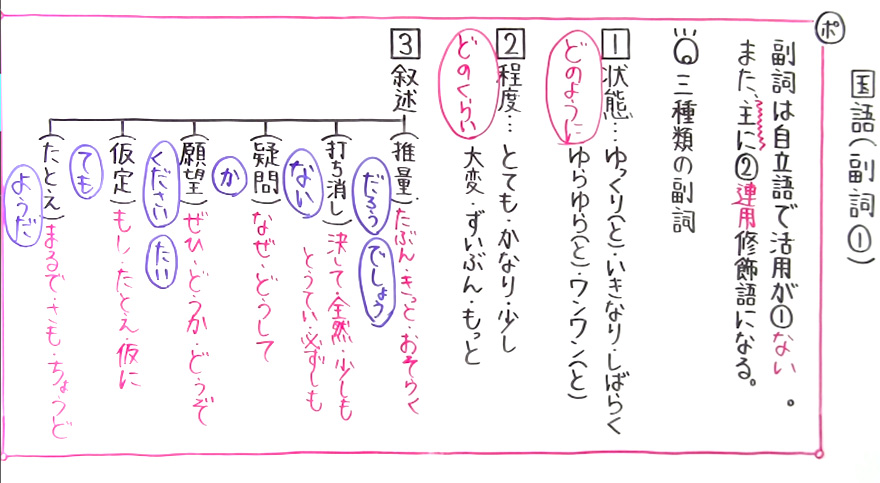 国語(副詞①)
ポ
副詞は自立語で活用が①ない。
また、主に②連用修飾語になる。
三種類の副詞
1 状態…ゆっくり(と)・いきなり・しばらく
どのように
ゆらゆら(と)・ワンワン(と)
2 程度…とても・かなり・少し
どのくらい
大変・ずいぶん・もっと
3 叙述
(推量)たぶん・きっと・おそらく
だろう でしょう
(打ち消し)決して・全然・少しも
ない
とうてい・必ずしも
(疑問)なぜ・どうして
か
(願望)ぜひ・どうか・どうぞ
ください たい
(仮定)もし・たとえ・仮に
ても
(たとえ)まるで・さも・ちょうど
ようだ